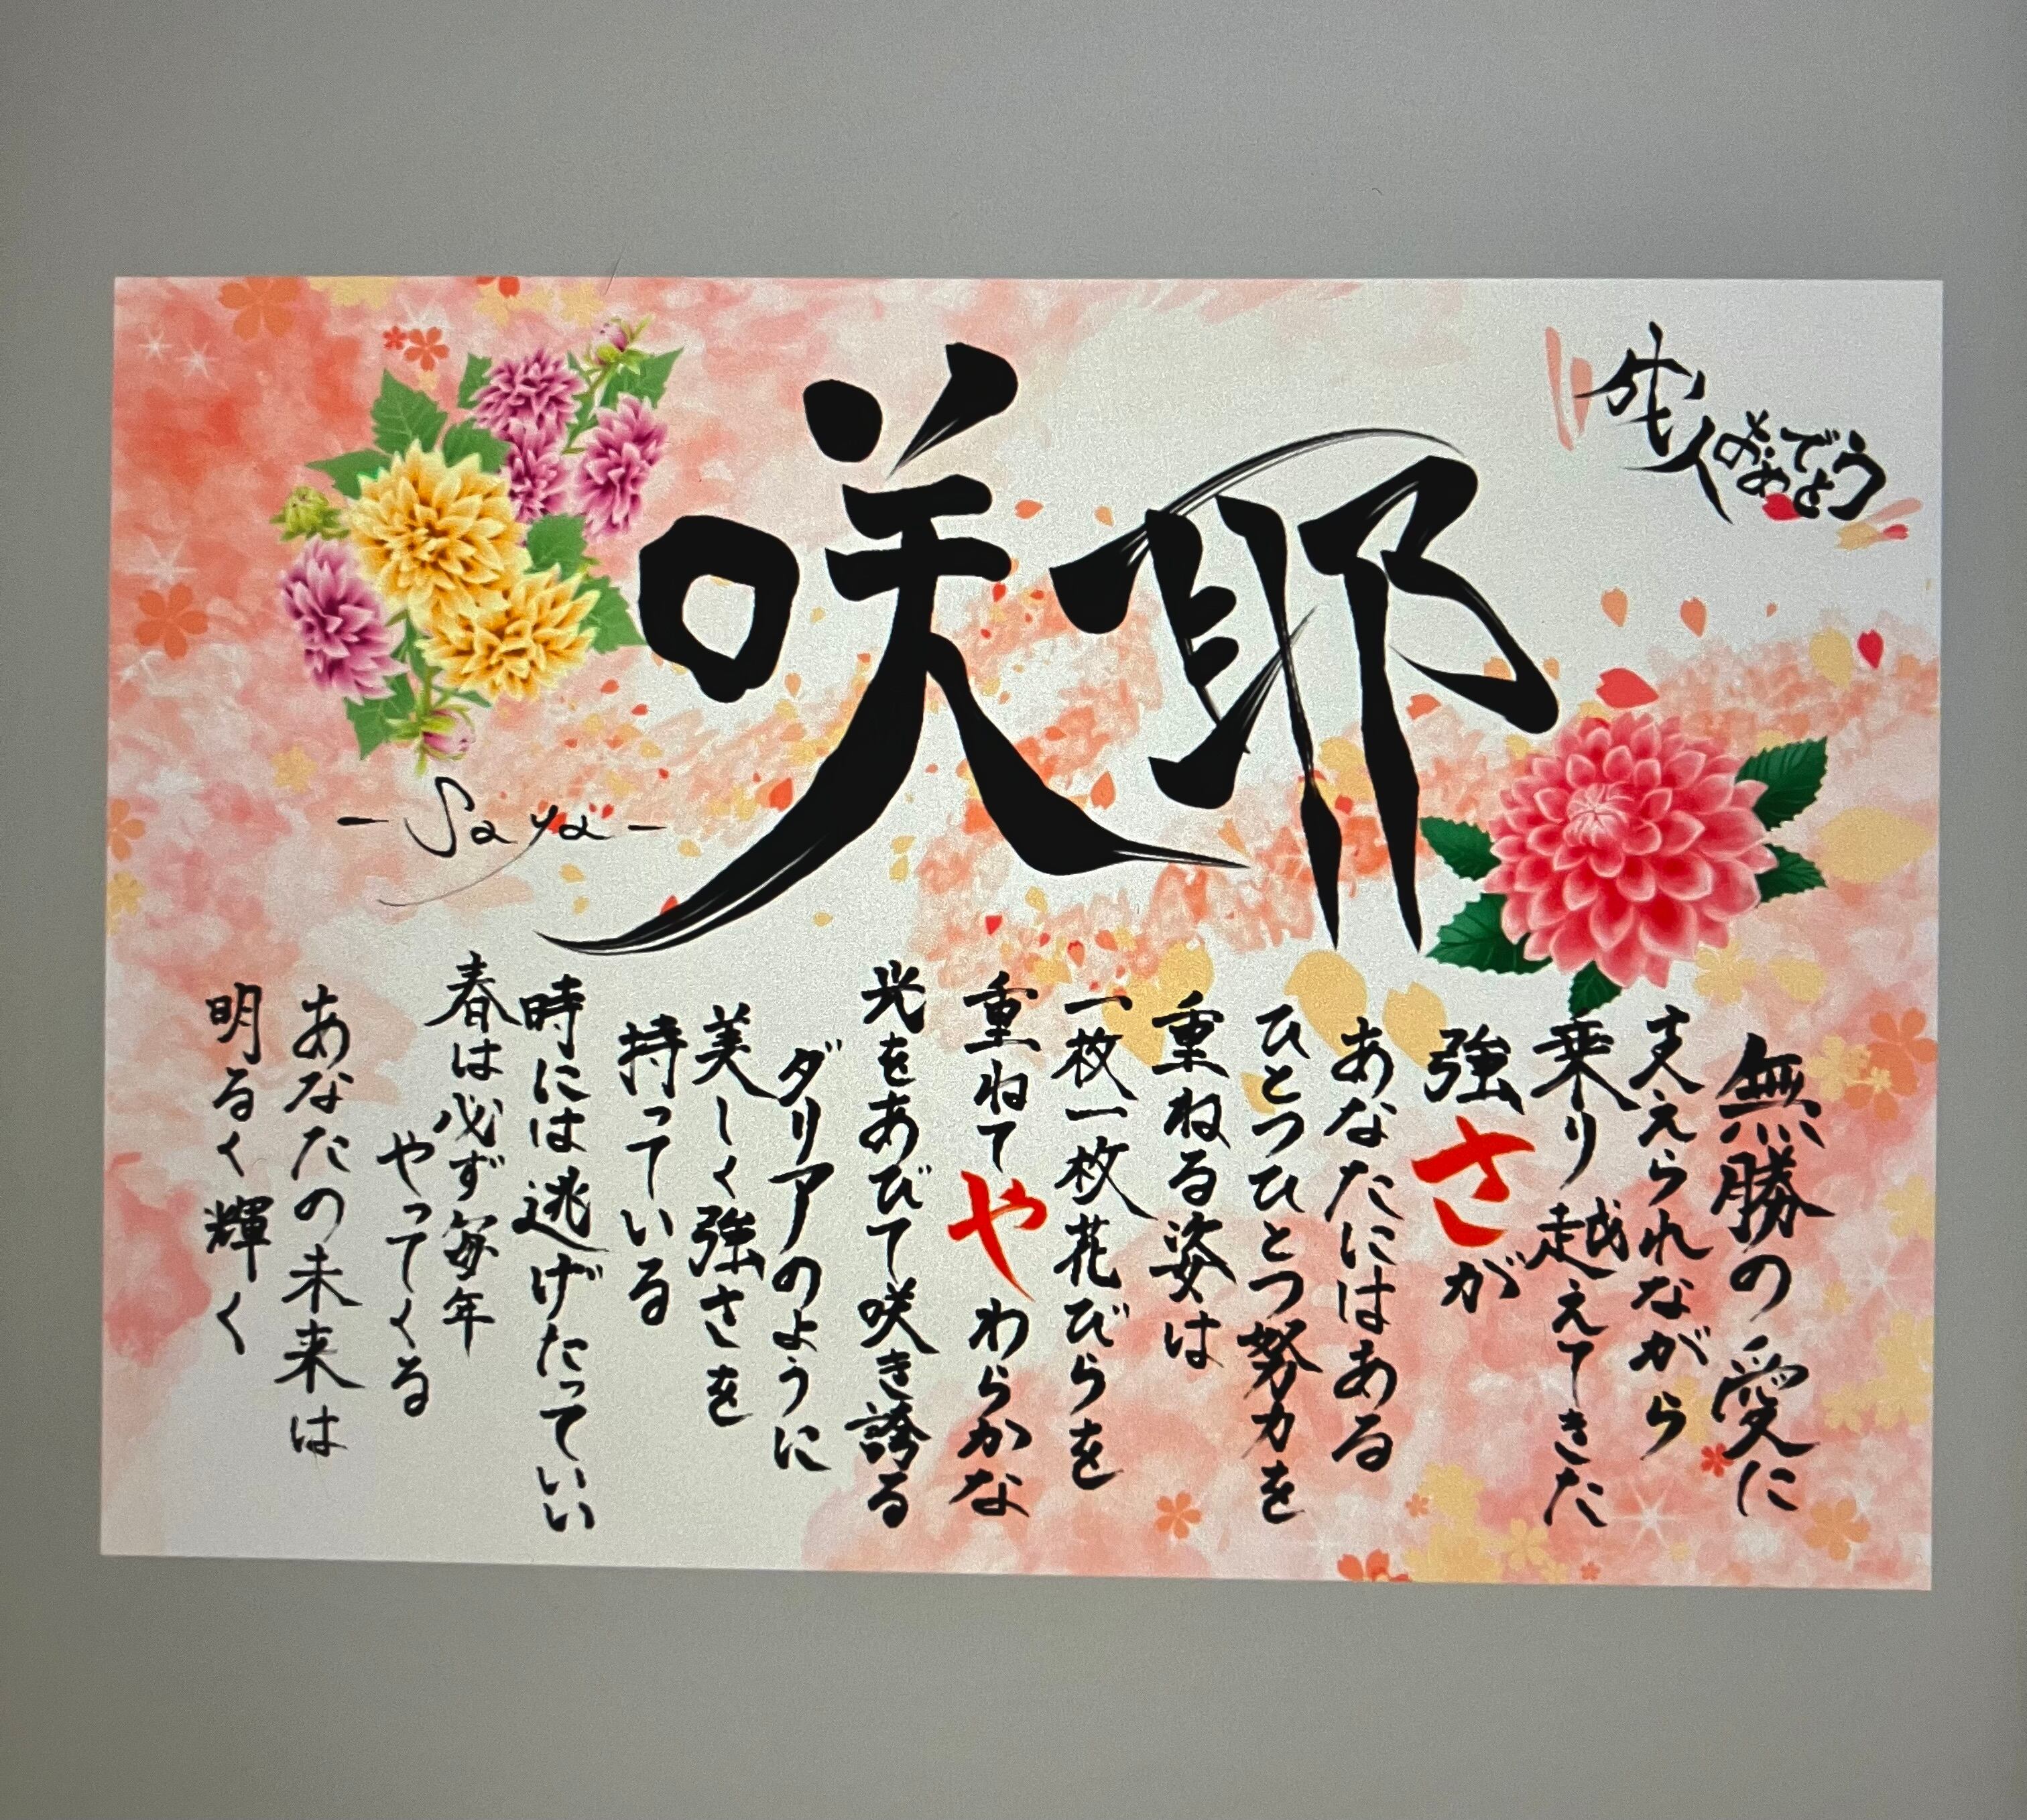 成人おめでとう
咲耶
-Saya-
無勝の愛に
支えられながら
乗り越えてきた
強さが
あなたにはある
ひとつひとつ努力を
重ねる姿は
一枚一枚花びらを
重ねてやわらかな
光をあびて咲き誇る
ダリアのように
美しく強さを
持っている
時には逃げたっていい
春は必ず毎年
やってくる
あなたの未来は
明るく輝く